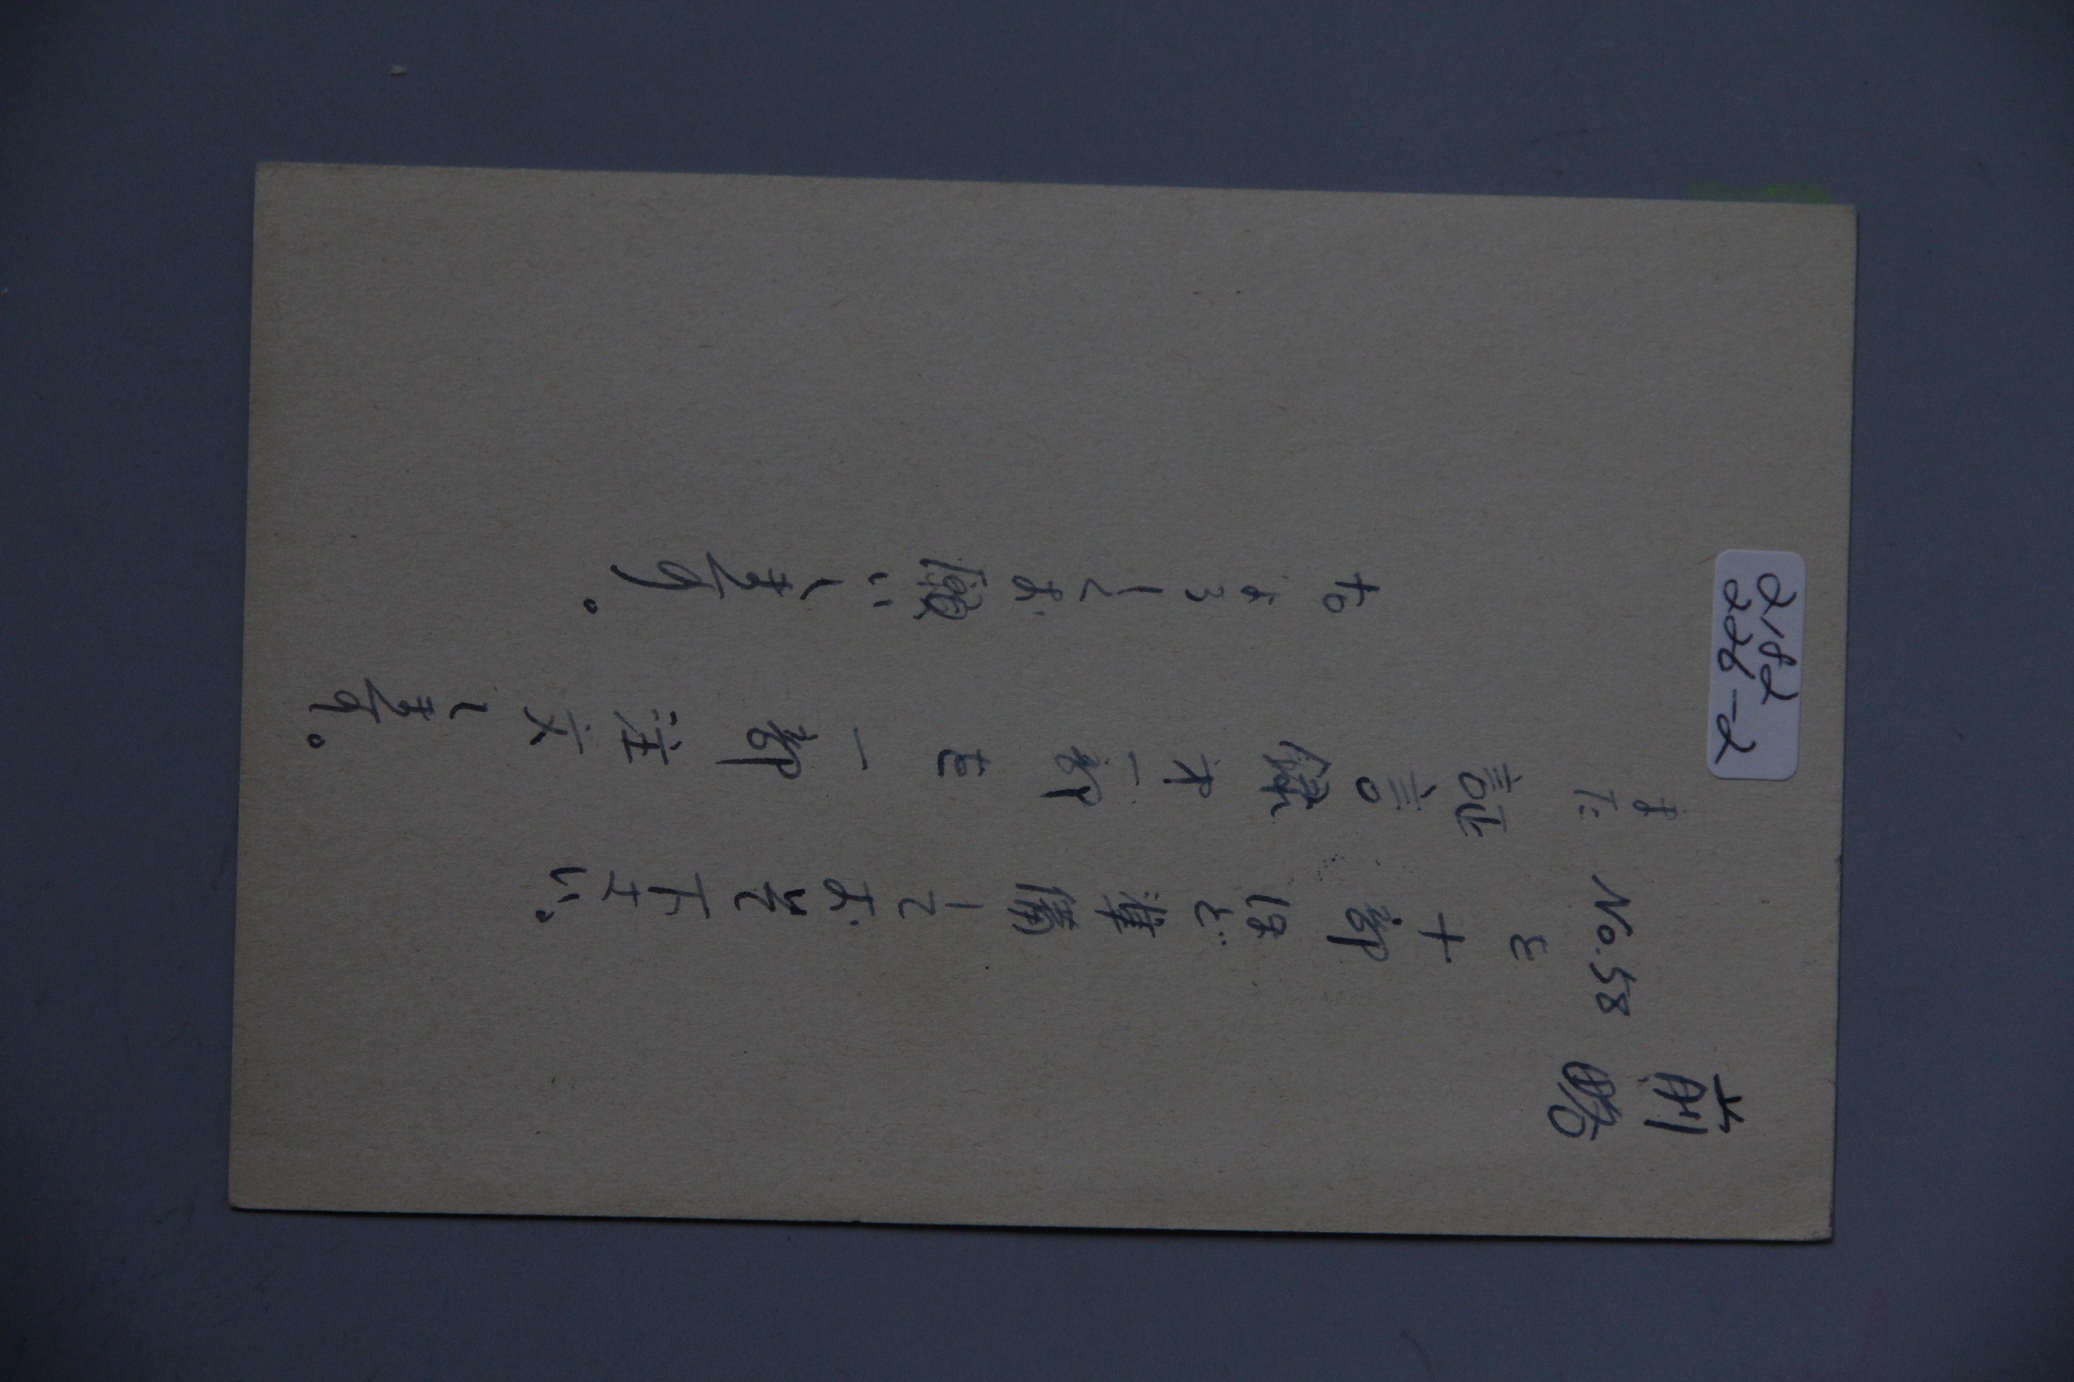 2182
226-2
前略
No.58を十部ほど準備しておいて下さい。
また証言録才一部も一部注文します。
右よろしくお願いします。